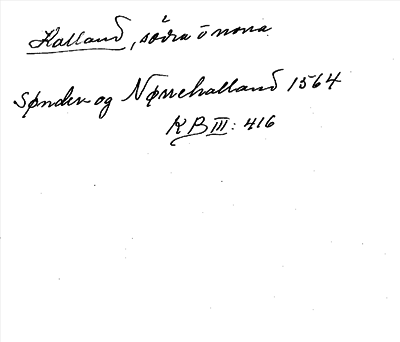 Halland, södra o norra
Sønder og Nørrehalland 1564
KB III: 416